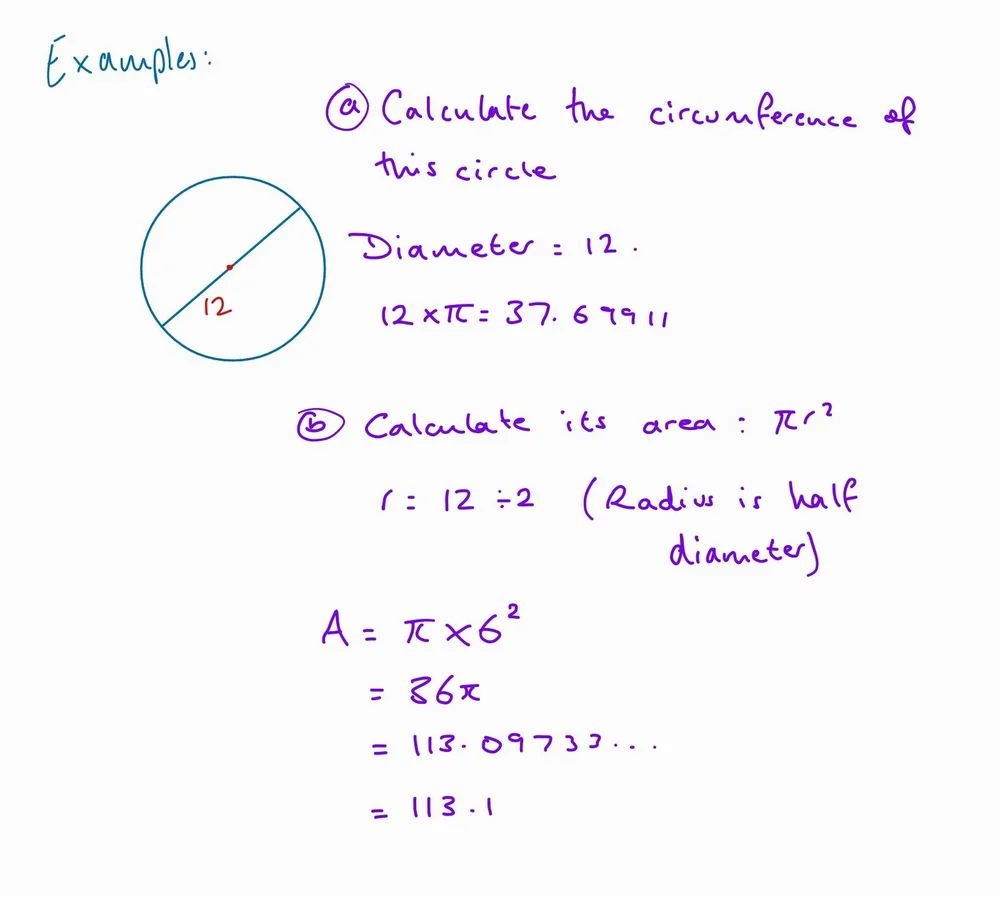 Examples:
ⓐ Calculate the circumference of
this circle
Diameter = 12.
12
12 × π = 37.69911
ⓑ Calculate its area : πr²
r = 12 ÷ 2 (Radius is half
diameter)
A = π × 6²
= 36π
= 113.09733...
= 113.1